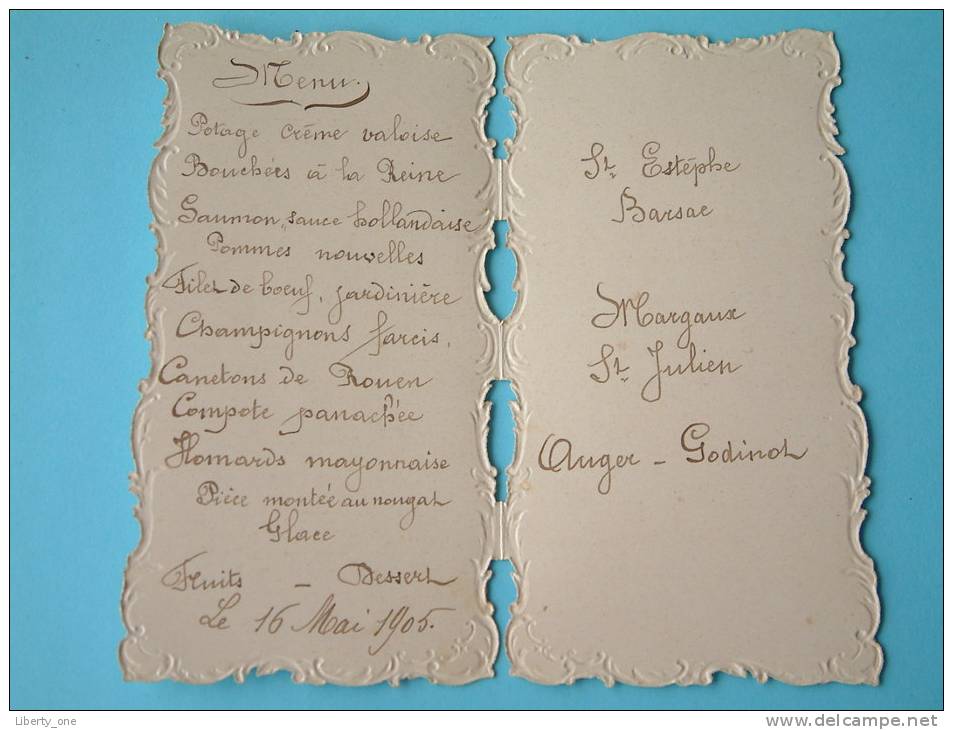 Menu.
Potage crême valoise
Bouchées à la Reine
Saumon, sauce hollandaise
Pommes nouvelles
Filet de boeuf, jardinière
Champignons farcis,
Canetons de Rouen
Compote panachée
Homards mayonnaise
Pièce montée au nougat
Glace
Fruits – Dessert
Le 16 Mai 1905.
St. Estéphe
Barsac
Margaux
St. Julien
Auger – Godinot
Liberty_one
www.delcampe.net